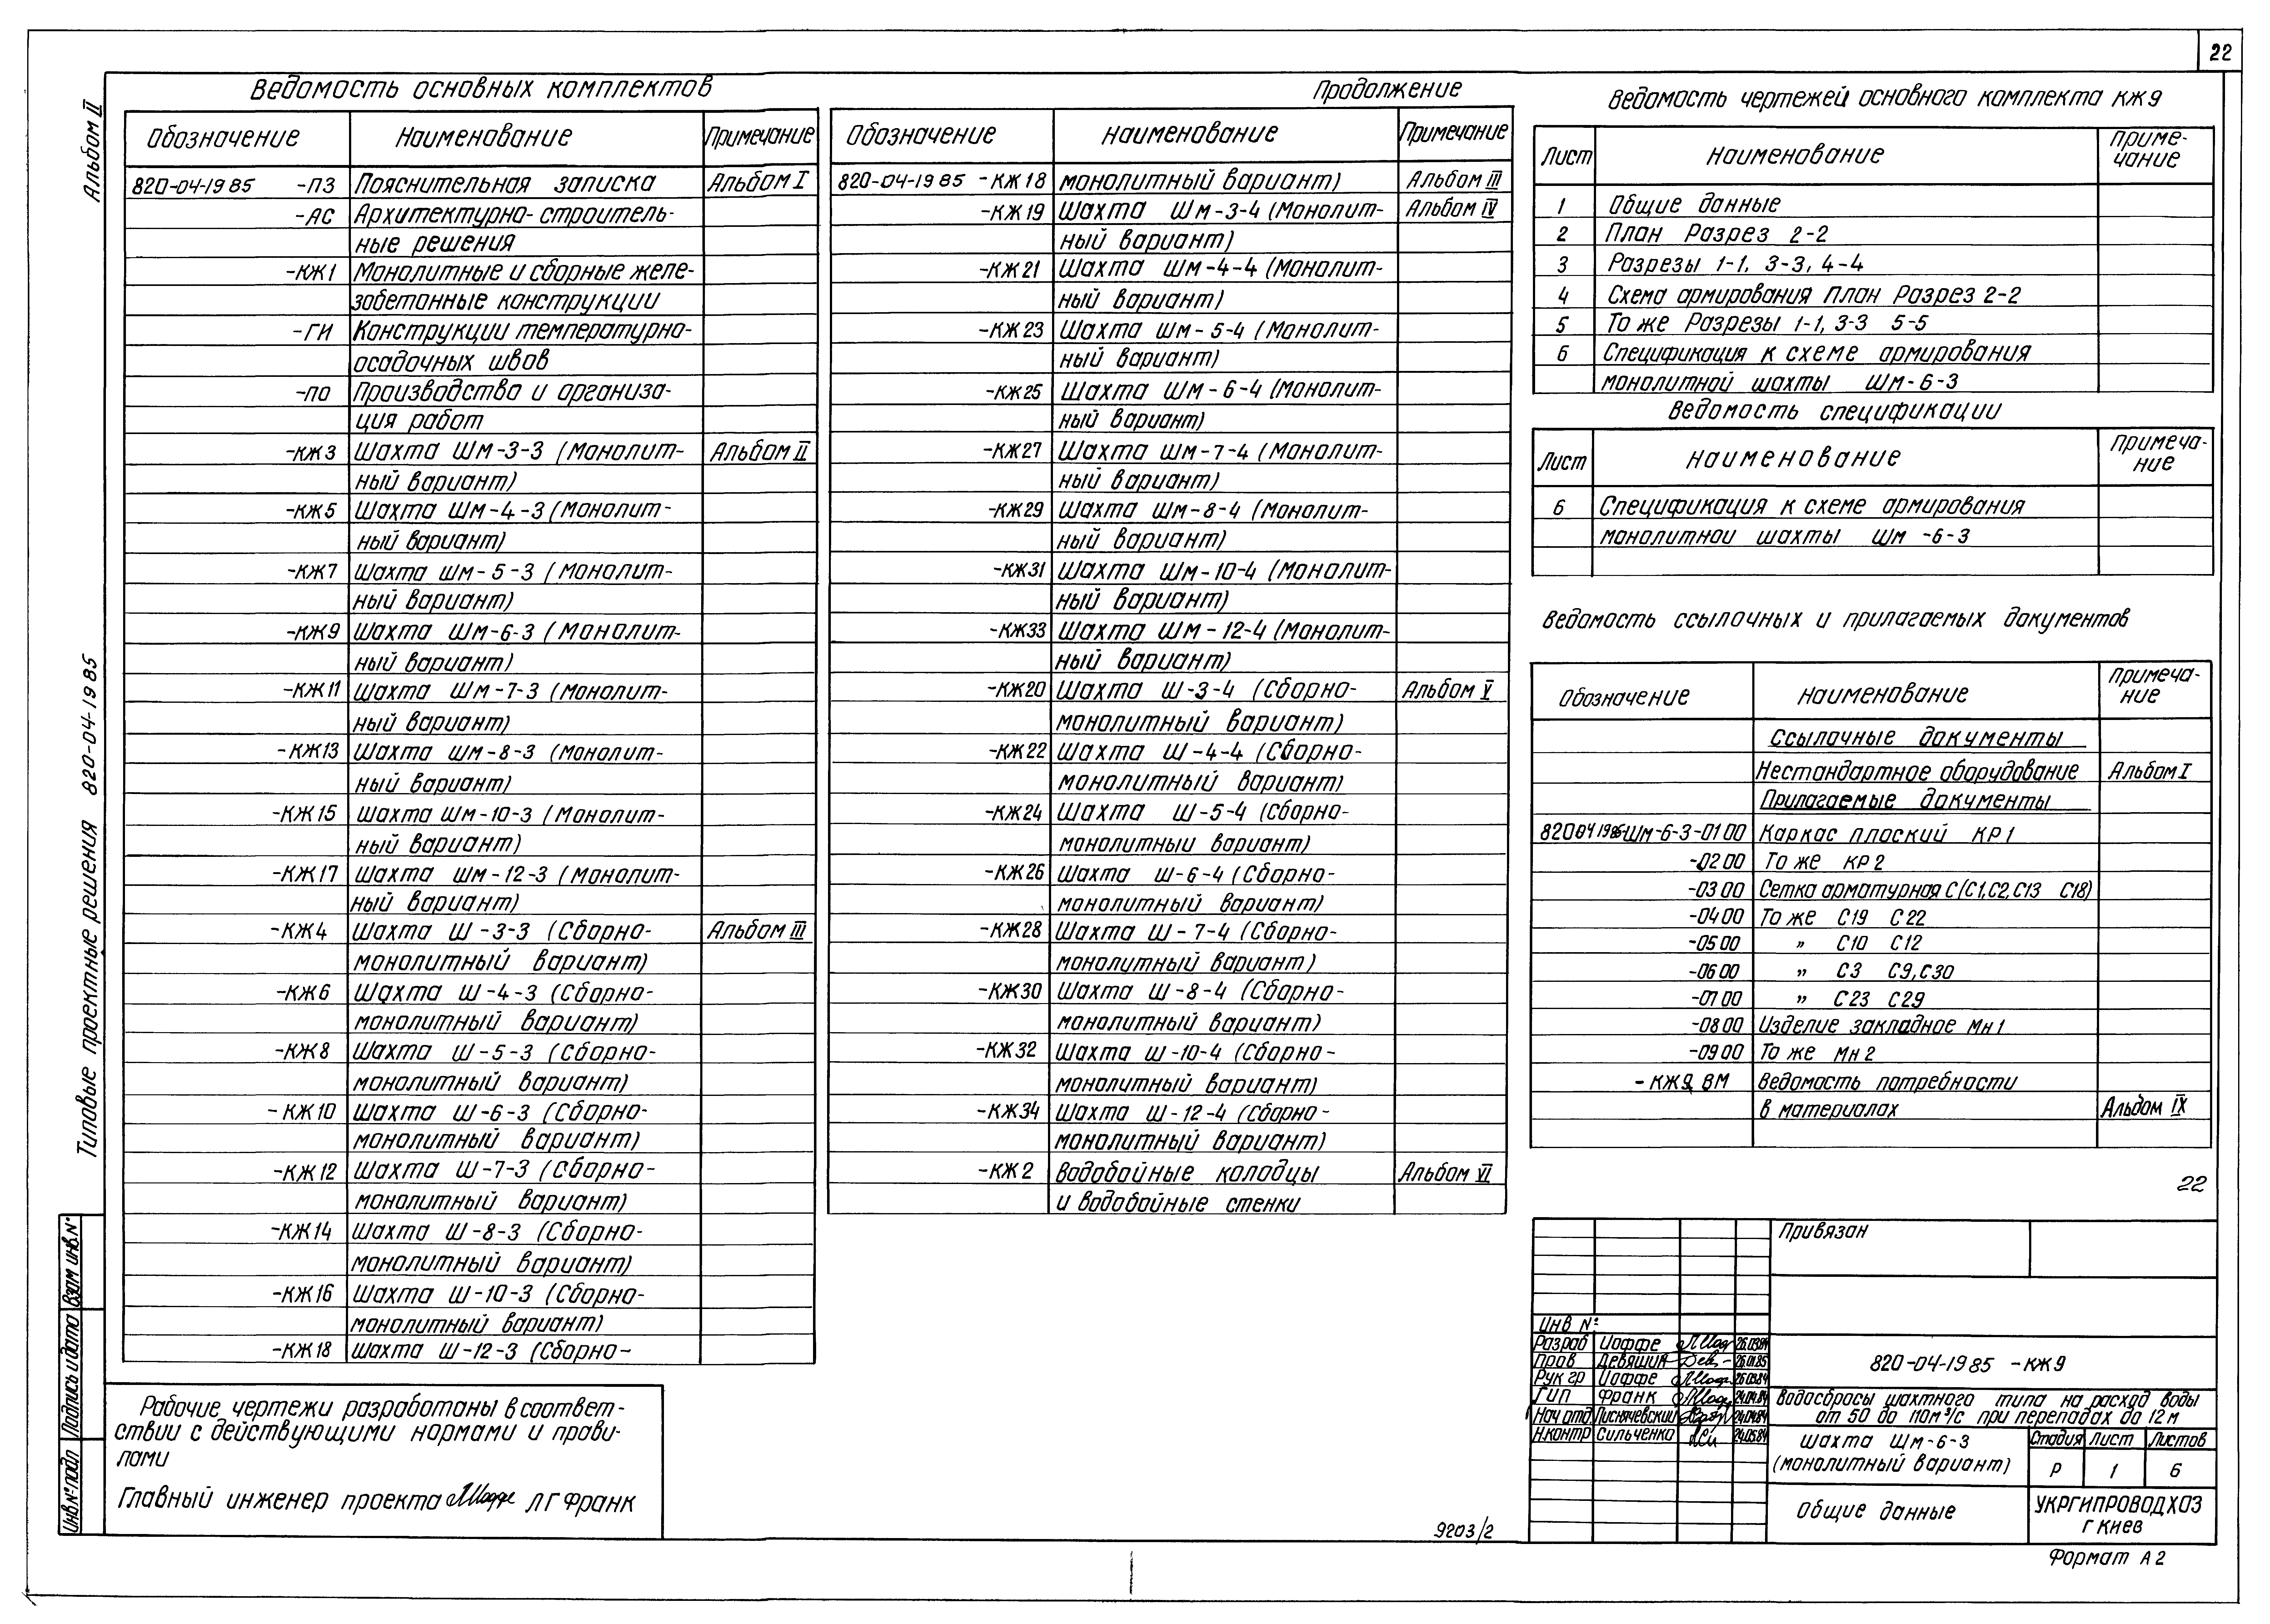 22
Альбом II
Типовые проектные решения 820-04-19 85
Ведомость основных комплектов
Обозначение Наименование Примечание
820-04-19 85 -ПЗ Пояснительная записка Альбом I
-АС Архитектурно-строитель-
ные решения
-КЖ1 Монолитные и сборные желе-
зобетонные конструкции
-ГИ Конструкции температурно-
осадочных швов
-ПО Производство и организа-
ция работ
-КЖ3 Шахта Шм-3-3 (Монолит- Альбом II
ный вариант)
-КЖ5 Шахта Шм-4-3 (Монолит-
ный вариант)
-КЖ7 Шахта Шм-5-3 (Монолит-
ный вариант)
-КЖ9 Шахта Шм-6-3 (Монолит-
ный вариант)
-КЖ11 Шахта Шм-7-3 (Монолит-
ный вариант)
-КЖ13 Шахта Шм-8-3 (Монолит-
ный вариант)
-КЖ15 Шахта Шм-10-3 (Монолит-
ный вариант)
-КЖ17 Шахта Шм-12-3 (Монолит-
ный вариант)
-КЖ4 Шахта Ш-3-3 (Сборно- Альбом III
монолитный вариант)
-КЖ6 Шахта Ш-4-3 (Сборно-
монолитный вариант)
-КЖ8 Шахта Ш-5-3 (Сборно-
монолитный вариант)
-КЖ10 Шахта Ш-6-3 (Сборно-
монолитный вариант)
-КЖ12 Шахта Ш-7-3 (Сборно-
монолитный вариант)
-КЖ14 Шахта Ш-8-3 (Сборно-
монолитный вариант)
-КЖ16 Шахта Ш-10-3 (Сборно-
монолитный вариант)
-КЖ18 Шахта Ш-12-3 (Сборно-
Продолжение
Обозначение Наименование Примечание
820-04-19 85 -КЖ18 монолитный вариант) Альбом III
-КЖ19 Шахта Шм-3-4 (Монолит- Альбом IV
ный вариант)
-КЖ21 Шахта Шм-4-4 (Монолит-
ный вариант)
-КЖ23 Шахта Шм-5-4 (Монолит-
ный вариант)
-КЖ25 Шахта Шм-6-4 (Монолит-
ный вариант)
-КЖ27 Шахта Шм-7-4 (Монолит-
ный вариант)
-КЖ29 Шахта Шм-8-4 (Монолит-
ный вариант)
-КЖ31 Шахта Шм-10-4 (Монолит-
ный вариант)
-КЖ33 Шахта Шм-12-4 (Монолит-
ный вариант)
-КЖ20 Шахта Ш-3-4 (Сборно- Альбом V
монолитный вариант)
-КЖ22 Шахта Ш-4-4 (Сборно-
монолитный вариант)
-КЖ24 Шахта Ш-5-4 (Сборно-
монолитный вариант)
-КЖ26 Шахта Ш-6-4 (Сборно-
монолитный вариант)
-КЖ28 Шахта Ш-7-4 (Сборно-
монолитный вариант)
-КЖ30 Шахта Ш-8-4 (Сборно-
монолитный вариант)
-КЖ32 Шахта Ш-10-4 (Сборно-
монолитный вариант)
-КЖ34 Шахта Ш-12-4 (Сборно-
монолитный вариант)
-КЖ2 Водобойные колодцы Альбом VI
и водобойные стенки
Ведомость чертежей основного комплекта КЖ9
Лист Наименование Приме-
чание
1 Общие данные
2 План Разрез 2-2
3 Разрезы 1-1, 3-3, 4-4
4 Схема армирования План Разрез 2-2
5 То же Разрезы 1-1, 3-3 5-5
6 Спецификация к схеме армирования
монолитной шахты Шм-6-3
Ведомость спецификации
Лист Наименование Примеча-
ние
6 Спецификация к схеме армирования
монолитной шахты Шм-6-3
Ведомость ссылочных и прилагаемых документов
Обозначение Наименование Примеча-
ние
Ссылочные документы
Нестандартное оборудование Альбом I
Прилагаемые документы
820-04 19 85-Шм-6-3-01 00 Каркас плоский КР1
-02 00 То же КР2
-03 00 Сетка арматурная С(С1,С2,С13 С18)
-04 00 То же С19 С22
-05 00 " С10 С12
-06 00 " С3 С9,С30
-07 00 " С23 С29
-08 00 Изделие закладное Мн1
-09 00 То же Мн2
-КЖ9 ВМ Ведомость потребности
в материалах Альбом IX
22
Привязан
Инв №
Разраб Иоффе 26.03.84
Пров Девяшин 26.01.85
Рук гр Иоффе 26.03.84
ГИП Франк 24.04.84
Нач отд 24.04.84
Н.контр Сильченко 24.05.84
820-04-19 85 -КЖ9
Водосбросы шахтного типа на расход воды
от 50 до 110 м³/с при перепадах до 12 м
Шахта Шм-6-3
(монолитный вариант)
Стадия Лист Листов
Р 1 6
Общие данные
УКРГИПРОВОДХОЗ
г Киев
Формат А2
Рабочие чертежи разработаны в соответ-
ствии с действующими нормами и прави-
лами
Главный инженер проекта Л Г Франк
9203/2
Инв № подл Подпись и дата Взам инв. №